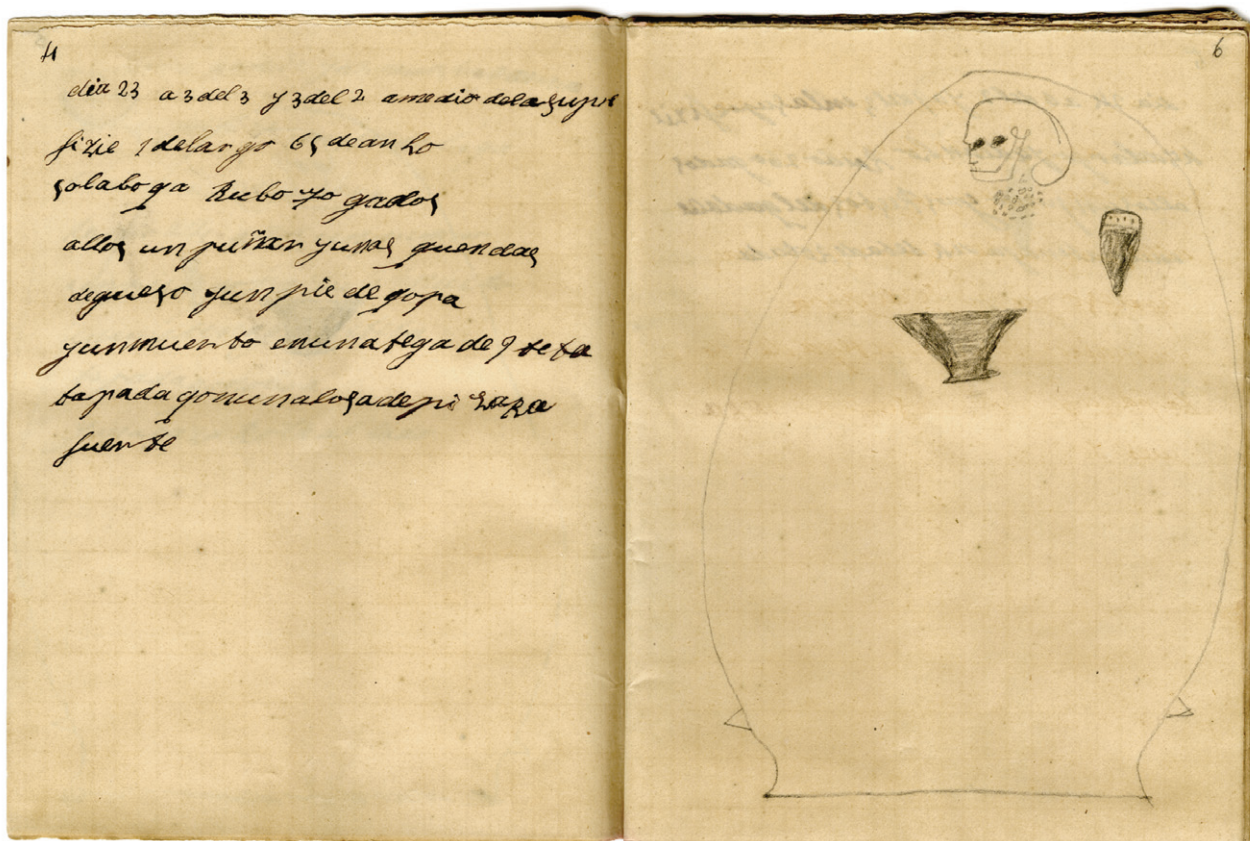 11
dia 23 a 3 del 3 y 3 del 2 a medio de la supr
fizie 1 de largo 65 de anho
solaboga Rubo yo gados
allos un puñar y unas quendas
de gueso y un pie de gopa
y un muerto en una tega de 9 teta
tapada gon una losa de pi zaRa
fuerte
6